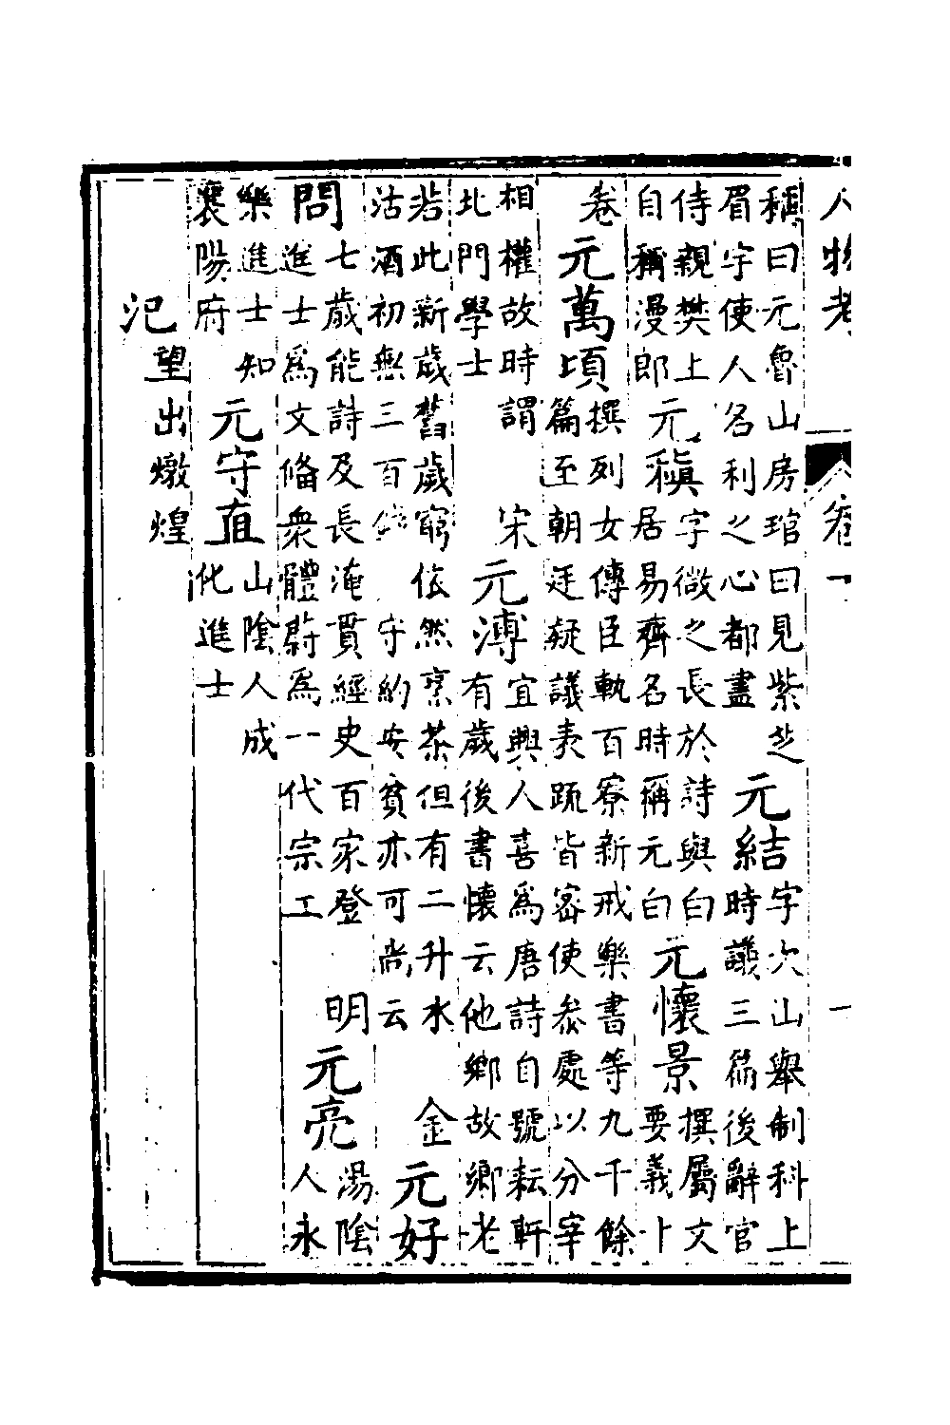 人物考 卷一 一
稱曰元魯山房琯曰見紫芝
眉宇使人名利之心都盡
元結
字次山舉制科上
時議三篇後辭官
侍親樊上
自稱漫郎
元稹
字微之長於詩與白
居易齊名時稱元白
元懷景
撰屬文
要義十
卷
元萬頃
撰列女傳臣軌百寮新戒樂書等九千餘
篇至朝廷疑議表疏皆密使參處以分宰
相權故時謂
北門學士
宋
元溥
宜興人喜爲唐詩自號耘軒
有歲後書懷云他鄉故鄉老
若此新歲舊歲窮依然烹茶但有二升水
沽酒初無三百錢守約安貧亦可尚云
金
元好
問
七歲能詩及長淹貫經史百家登
進士爲文備衆體蔚爲一代宗工
明
元亮
湯陰
人永
樂進士知
襄陽府
元守直
山陰人成
化進士
氾
望出燉煌